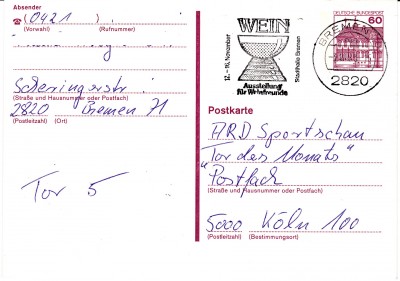 Absender
☎ (0421)
(Vorwahl) (Rufnummer)
Scheringerstr
(Straße und Hausnummer oder Postfach)
2820 Bremen 71
(Postleitzahl) (Ort)
Tor 5
WEIN
12.-16. November
Stadthalle Bremen
Ausstellung
für Weinfreunde
BREMEN
2820
DEUTSCHE BUNDESPOST
60
Postkarte
ARD Sportschau
"Tor des Monats"
Postfach
(Straße und Hausnummer oder Postfach)
5000 Köln 100
(Postleitzahl) (Bestimmungsort)